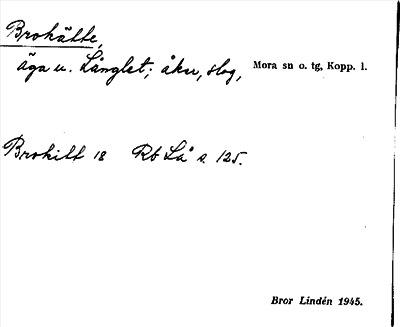 Brohätte,
äga u. Långlet; åker, slog, Mora sn o. tg, Kopp. l.
Brohitt 18 Rb Lå s. 125.
Bror Lindén 1945.